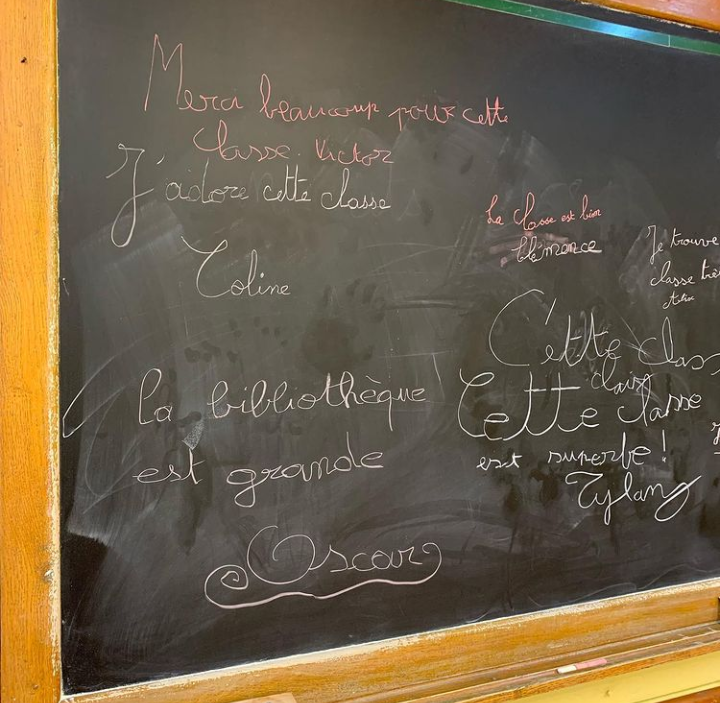 Merci beaucoup pour cette
classe. Victor
J'adore cette classe
Coline
La classe est bien
Clémence
Je trouve
classe
Cette class
Cette classe
est superbe !
Tylan
La bibliothèque
est grande
Oscar